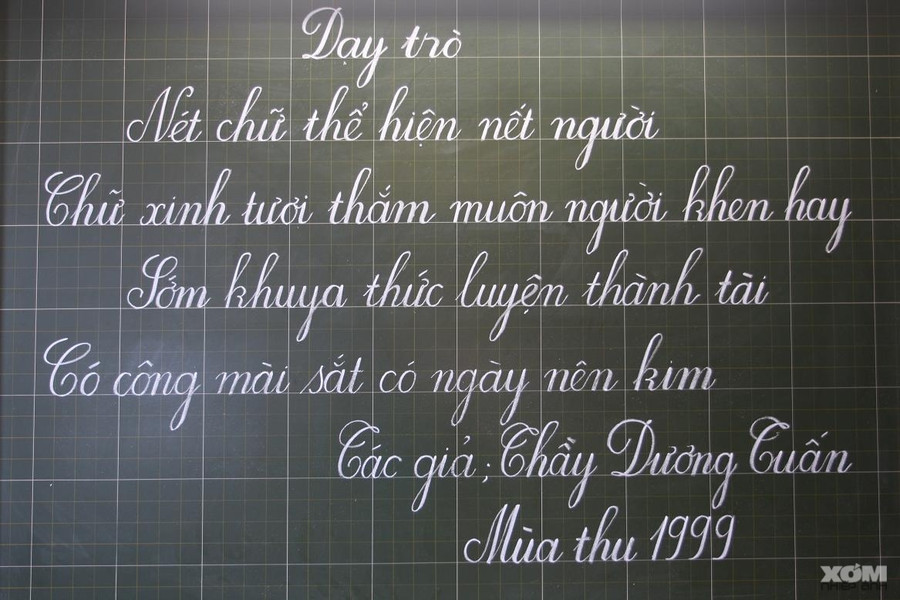 Dạy trò
Nét chữ thể hiện nết người
Chữ xinh tươi thắm muôn người khen hay
Sớm khuya thức luyện thành tài
Có công mài sắt có ngày nên kim
Tác giả ; Thầy Dương Tuấn
Mùa thu 1999
XÓM
NHIẾP ẢNH